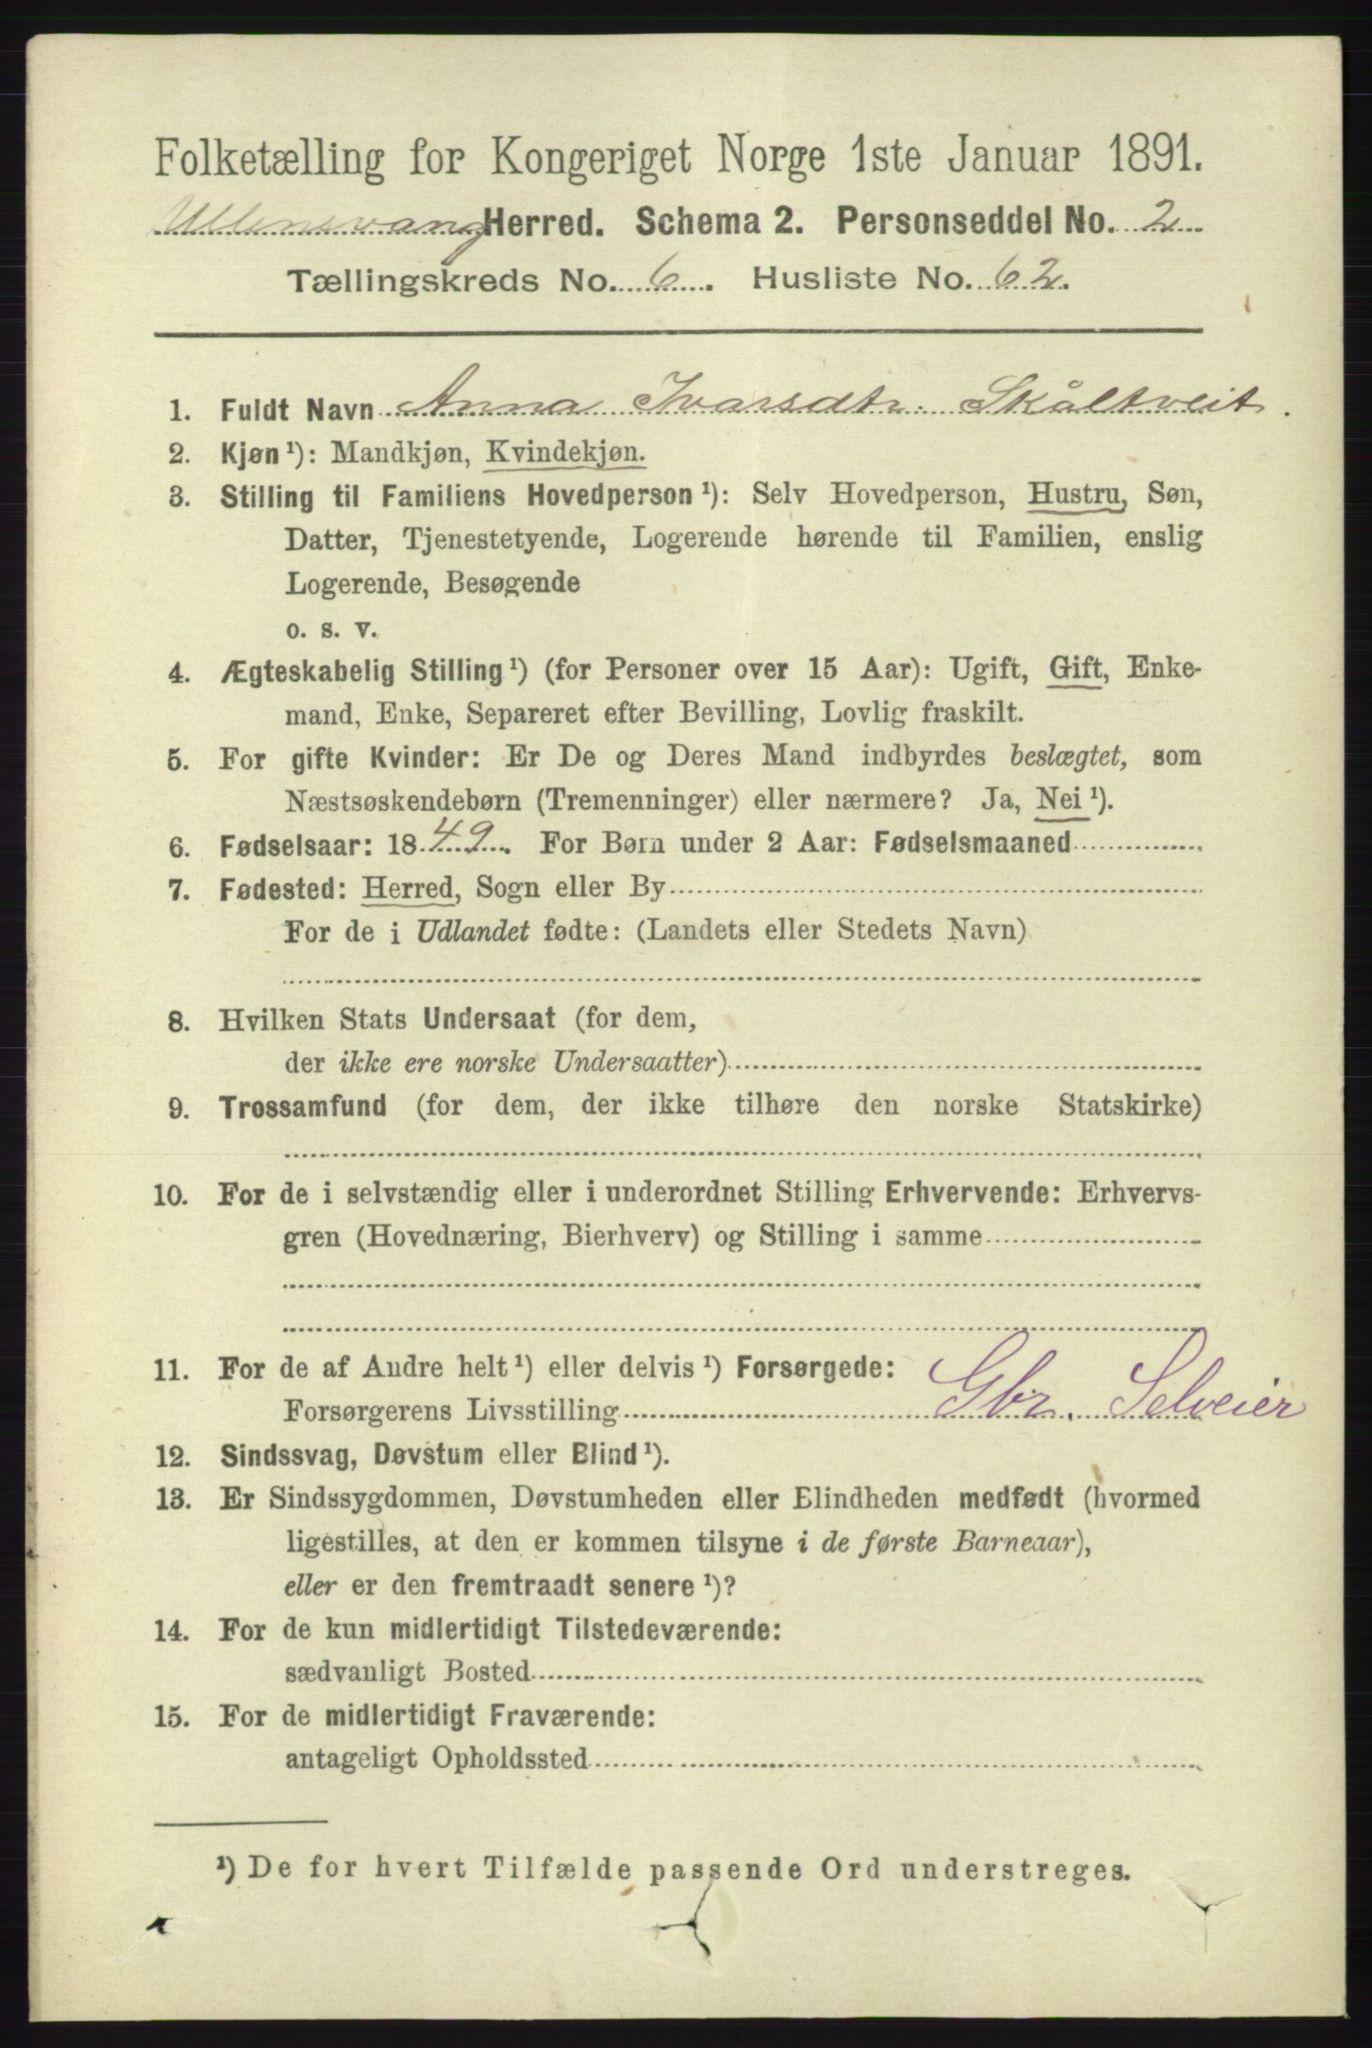 Folketælling for Kongeriget Norge 1ste Januar 1891.
Ullensvang Herred. Schema 2. Personseddel No. 2
Tællingskreds No. 6. Husliste No. 62.
1. Fuldt Navn Anna Ivarsdtr. Skåltveit.
2. Kjøn ¹): Mandkjøn, Kvindekjøn.
3. Stilling til Familiens Hovedperson ¹): Selv Hovedperson, Hustru, Søn,
Datter, Tjenestetyende, Logerende hørende til Familien, enslig
Logerende, Besøgende
o. s. v.
4. Ægteskabelig Stilling ¹) (for Personer over 15 Aar): Ugift, Gift, Enke-
mand, Enke, Separeret efter Bevilling, Lovlig fraskilt.
5. For gifte Kvinder: Er De og Deres Mand indbyrdes beslægtet, som
Næstsøskendebørn (Tremenninger) eller nærmere? Ja, Nei ¹).
6. Fødselsaar: 1849. For Børn under 2 Aar: Fødselsmaaned
7. Fødested: Herred, Sogn eller By
For de i Udlandet fødte: (Landets eller Stedets Navn)
8. Hvilken Stats Undersaat (for dem,
der ikke ere norske Undersaatter)
9. Trossamfund (for dem, der ikke tilhøre den norske Statskirke)
10. For de i selvstændig eller i underordnet Stilling Erhvervende: Erhvervs-
gren (Hovednæring, Bierhverv) og Stilling i samme
11. For de af Andre helt ¹) eller delvis ¹) Forsørgede:
Forsørgerens Livsstilling Gbr. Selveier
12. Sindssvag, Døvstum eller Blind ¹).
13. Er Sindssygdommen, Døvstumheden eller Blindheden medfødt (hvormed
ligestilles, at den er kommen tilsyne i de første Barneaar),
eller er den fremtraadt senere ¹)?
14. For de kun midlertidigt Tilstedeværende:
sædvanligt Bosted
15. For de midlertidigt Fraværende:
antageligt Opholdssted
¹) De for hvert Tilfælde passende Ord understreges.